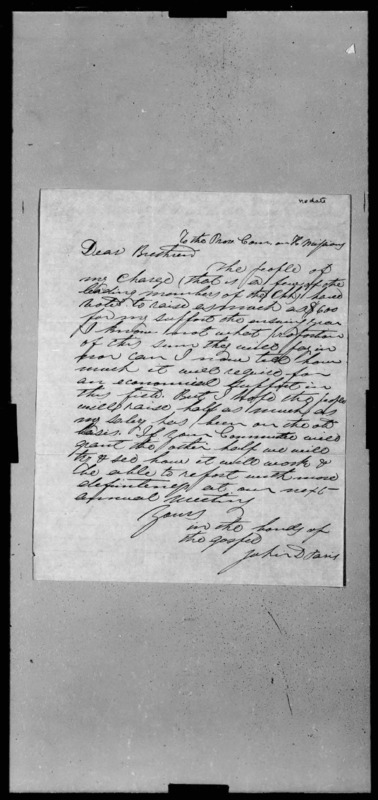 no date
To the Prov Com on H Missions
Dear Brethren
The people of
my charge (that is a few of the
leading members of the Chh) have
voted to raise as much as $600
for my support the ensuing year
I know not what proportion
of this sum they will pay in
nor can I now tell how
much it will require for
an economical support in
this field. But I hope the people
will raise half as much as
my salary has been on the old
basis. If your Committee will
grant the other half we will
try & see how it will work &
be able to report with more
definiteness at our next
annual meeting
Yours
in the bonds of
the gospel
John D Paris